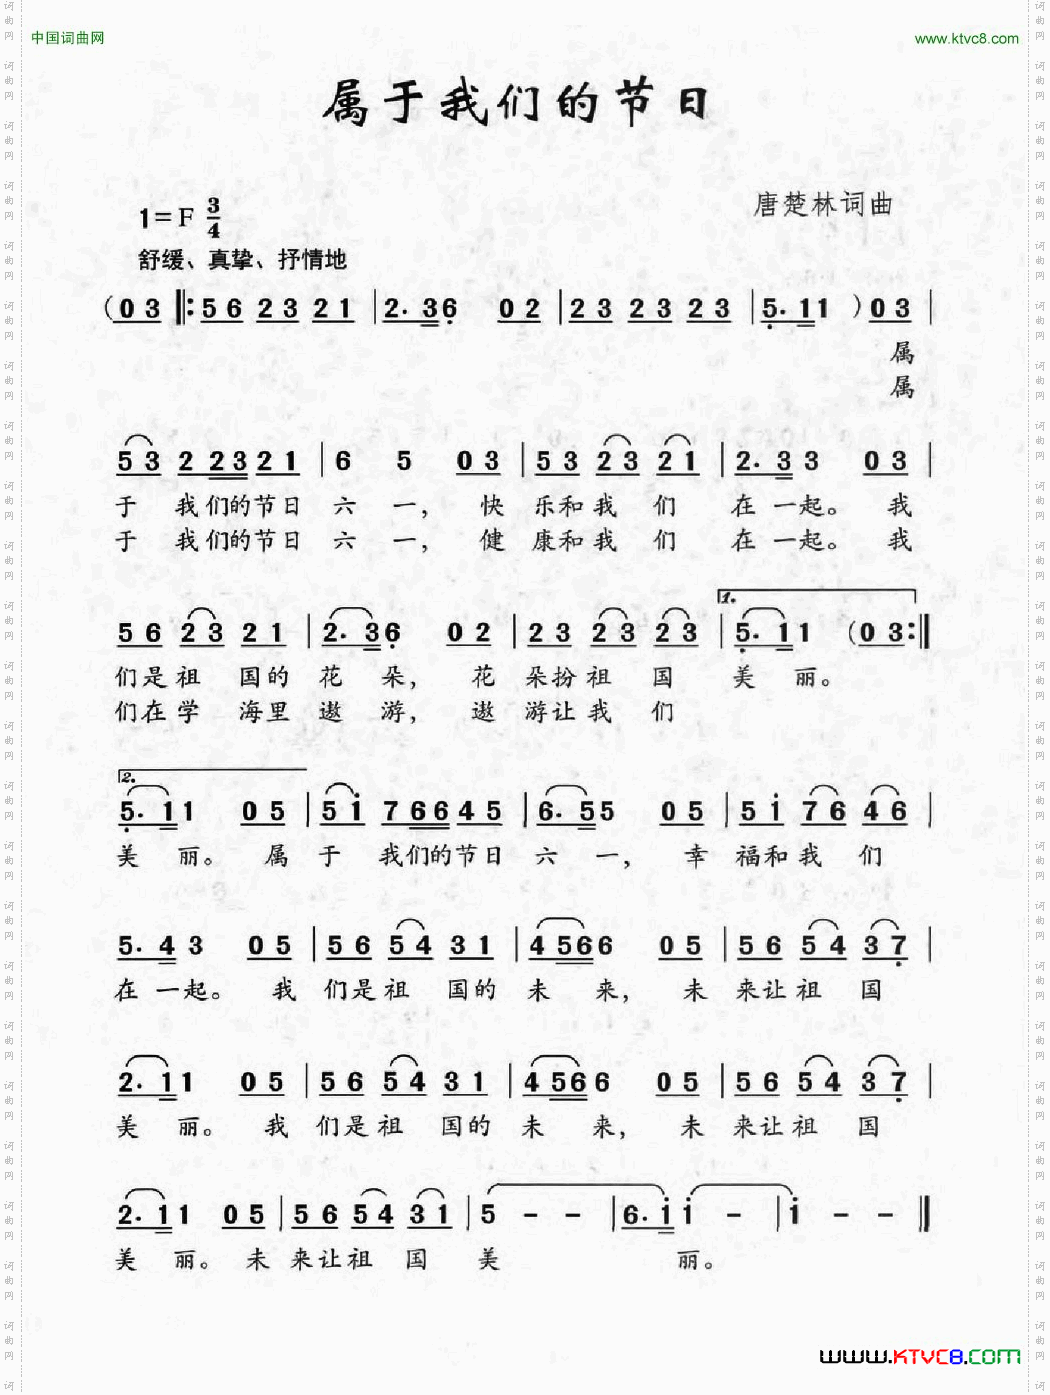 中国词曲网 www.ktvc8.com
属于我们的节日
1=F 3/4
唐楚林词曲
舒缓、真挚、抒情地
(03 ‖: 56 23 21 | 2. 36 02 | 23 23 23 | 5. 11 ) 03 |
属
属
53 2 2321 | 6 5 03 | 53 23 21 | 2. 33 03 |
于 我们的节日 六 一, 快 乐和我 们 在 一起。 我
于 我们的节日 六 一, 健 康和我 们 在 一起。 我
56 23 21 | 2. 36 02 | 23 23 23 | 1. 5. 11 (03 :‖
们是祖 国的 花 朵, 花 朵扮祖 国 美 丽。
们在学 海里 遨 游, 遨 游让我 们
2. 5. 11 05 | 5i 7 6645 | 6. 55 05 | 5i 76 46 |
美 丽。 属 于 我们的节日 六 一, 幸 福和我 们
5. 43 05 | 56 54 31 | 4 566 05 | 56 54 37 |
在 一起。 我 们是祖 国的 未 来, 未 来让祖 国
2. 11 05 | 56 54 31 | 4 566 05 | 56 54 37 |
美 丽。 我 们是祖 国的 未 来, 未 来让祖 国
2. 11 05 | 56 54 31 | 5 - - | 6. i i - | i - - ‖
美 丽。 未 来让祖 国 美 丽。
www.KTVC8.COM
词曲网